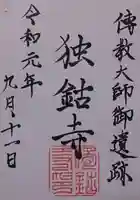 傳教大師御遺跡
独鈷寺
令和元年
九月十一日